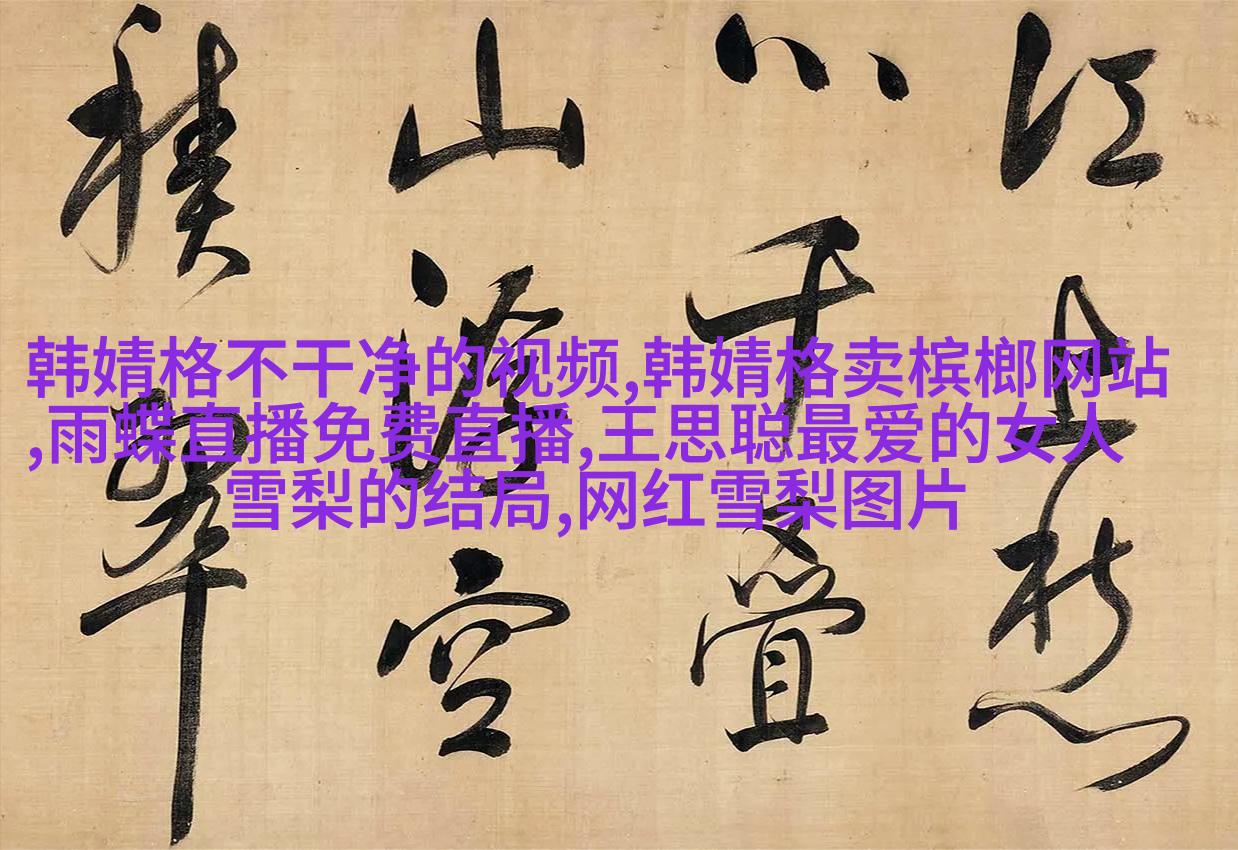 江上愁
心千疊
山浮空
積翠
韩婧格不干净的视频,韩婧格卖槟榔网站
,雨蝶直播免费直播,王思聪最爱的女人
雪梨的结局,网红雪梨图片